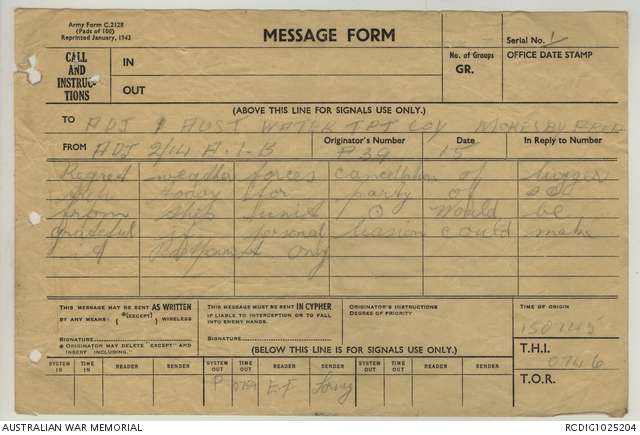 Army Form C.2128
(Pads of 100)
Reprinted January, 1943
MESSAGE FORM
Serial No. 1
CALL AND INSTRUC- TIONS
IN
OUT
No. of Groups
GR.
OFFICE DATE STAMP
(ABOVE THIS LINE FOR SIGNALS USE ONLY.)
TO ADJ 1 AUST WATER TPT COY
FROM ADJ 2/14 A.I.B Originator's Number P39 Date 15 In Reply to Number
Regret weather forces cancellation of
for party of
from this unit would be
grateful if personal could make
only
THIS MESSAGE MAY BE SENT AS WRITTEN
BY ANY MEANS. (*(EXCEPT) ) WIRELESS
Signature
* ORIGINATOR MAY DELETE "EXCEPT" AND INSERT INCLUDING."
THIS MESSAGE MUST BE SENT IN CYPHER
IF LIABLE TO INTERCEPTION OR TO FALL INTO ENEMY HANDS.
Signature
ORIGINATOR'S INSTRUCTIONS
DEGREE OF PRIORITY
TIME OF ORIGIN
150745
(BELOW THIS LINE IS FOR SIGNALS USE ONLY.)
T.H.I.
0746
T.O.R.
SYSTEM IN TIME IN READER SENDER SYSTEM OUT TIME OUT READER SENDER SYSTEM OUT TIME OUT READER SENDER
P EF
AUSTRALIAN WAR MEMORIAL
RCDIG1025204